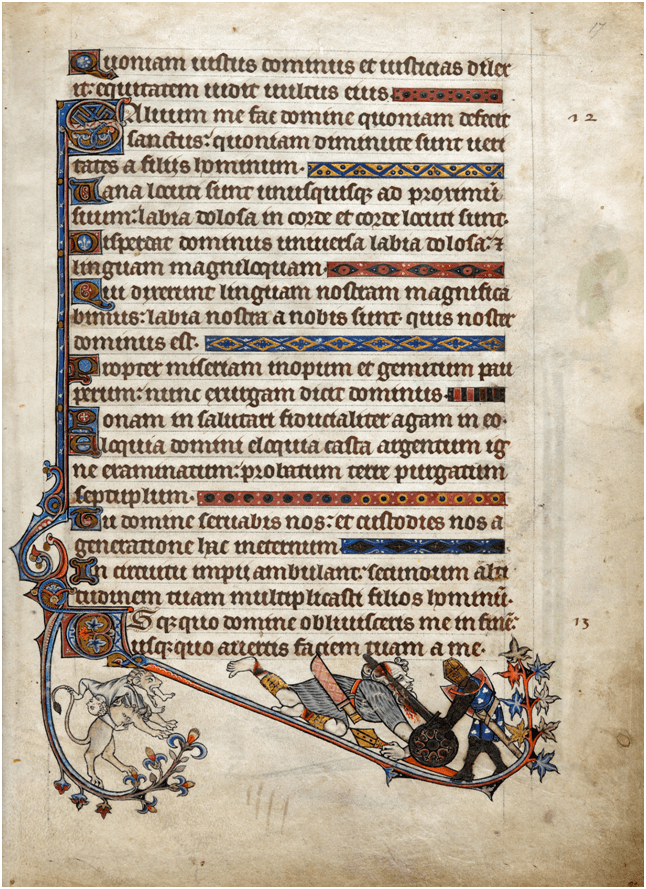 17
Quoniam iustus dominus et iusticias dilex
it: equitatem uidit uultus eius.
Saluum me fac domine quoniam defecit
12
sanctus: quoniam diminute sunt ueri
tates a filiis hominum.
Uana locuti sunt unusquisq; ad proximū
suum: labia dolosa in corde et corde locuti sunt.
Disperdat dominus uniuersa labia dolosa: ⁊
linguam magniloquam.
Qui dixerunt linguam nostram magnifica
bimus: labia nostra a nobis sunt. quis noster
dominus est.
Propter miseriam inopum et gemitum pau
perum: nunc exurgam dicit dominus.
Ponam in salutari fiducialiter agam in eo.
Eloquia domini eloquia casta argentum ig
ne examinatum: probatum terre purgatum
septuplum.
Tu domine seruabis nos: et custodies nos a
generatione hac in eternum.
In circuitu impii ambulant: secundum alti
tudinem tuam multiplicasti filios hominū.
Usq; quo domine obliuisceris me in finē:
13
usq; quo auertis faciem tuam a me.